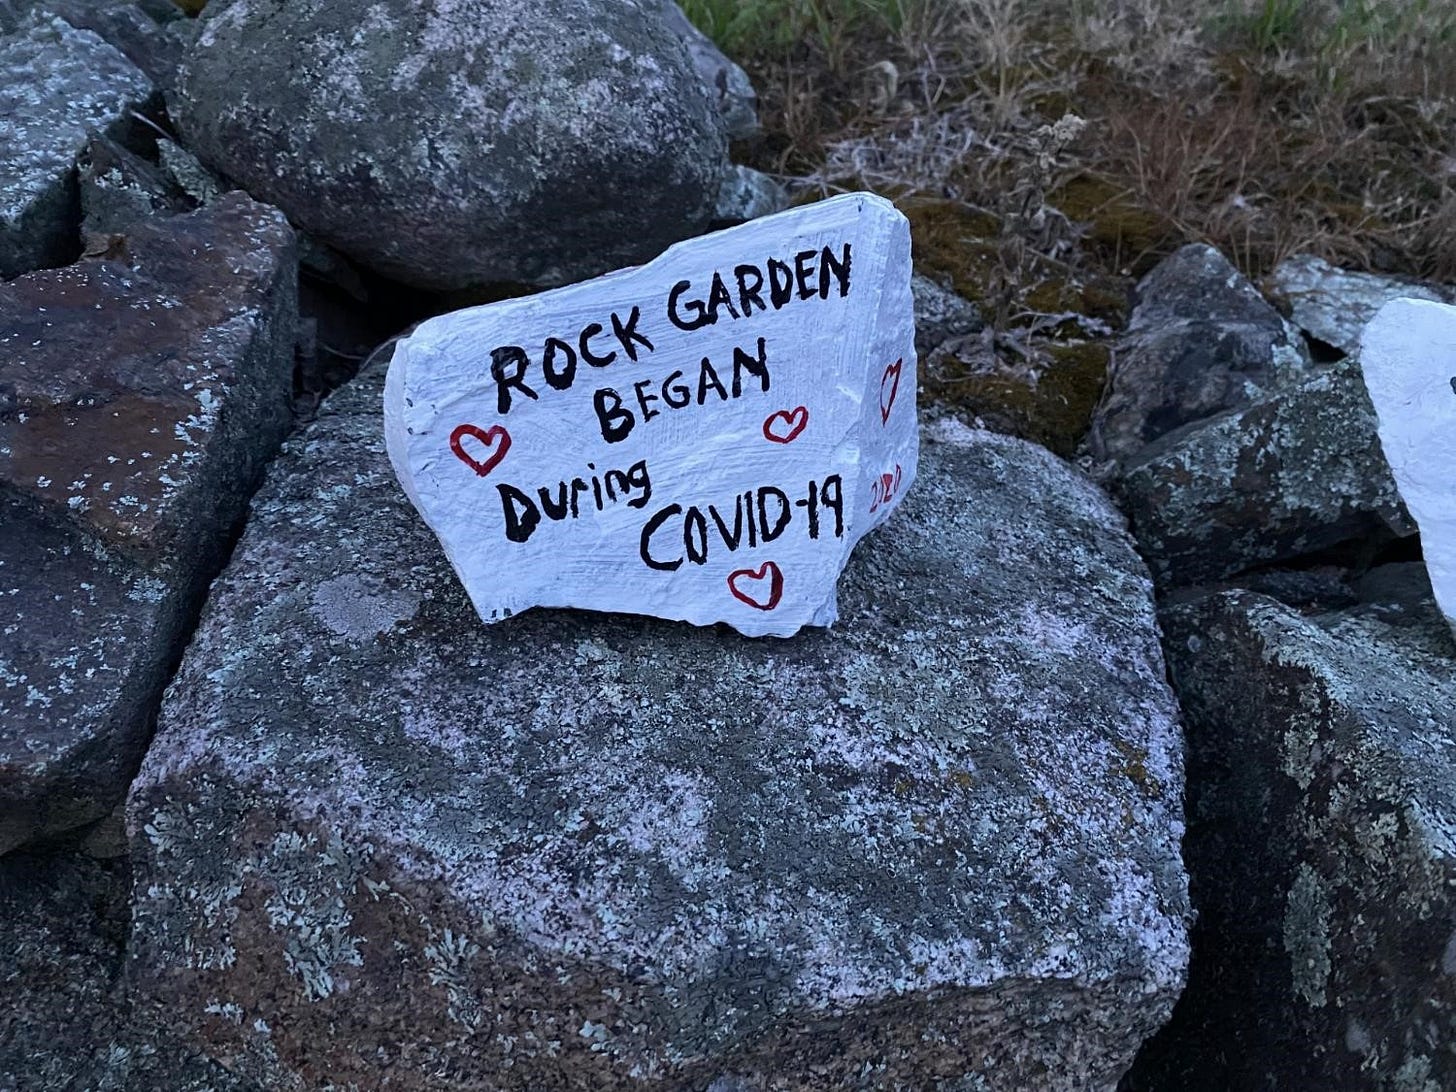 ROCK GARDEN
BEGAN
During
COVID-19
2020